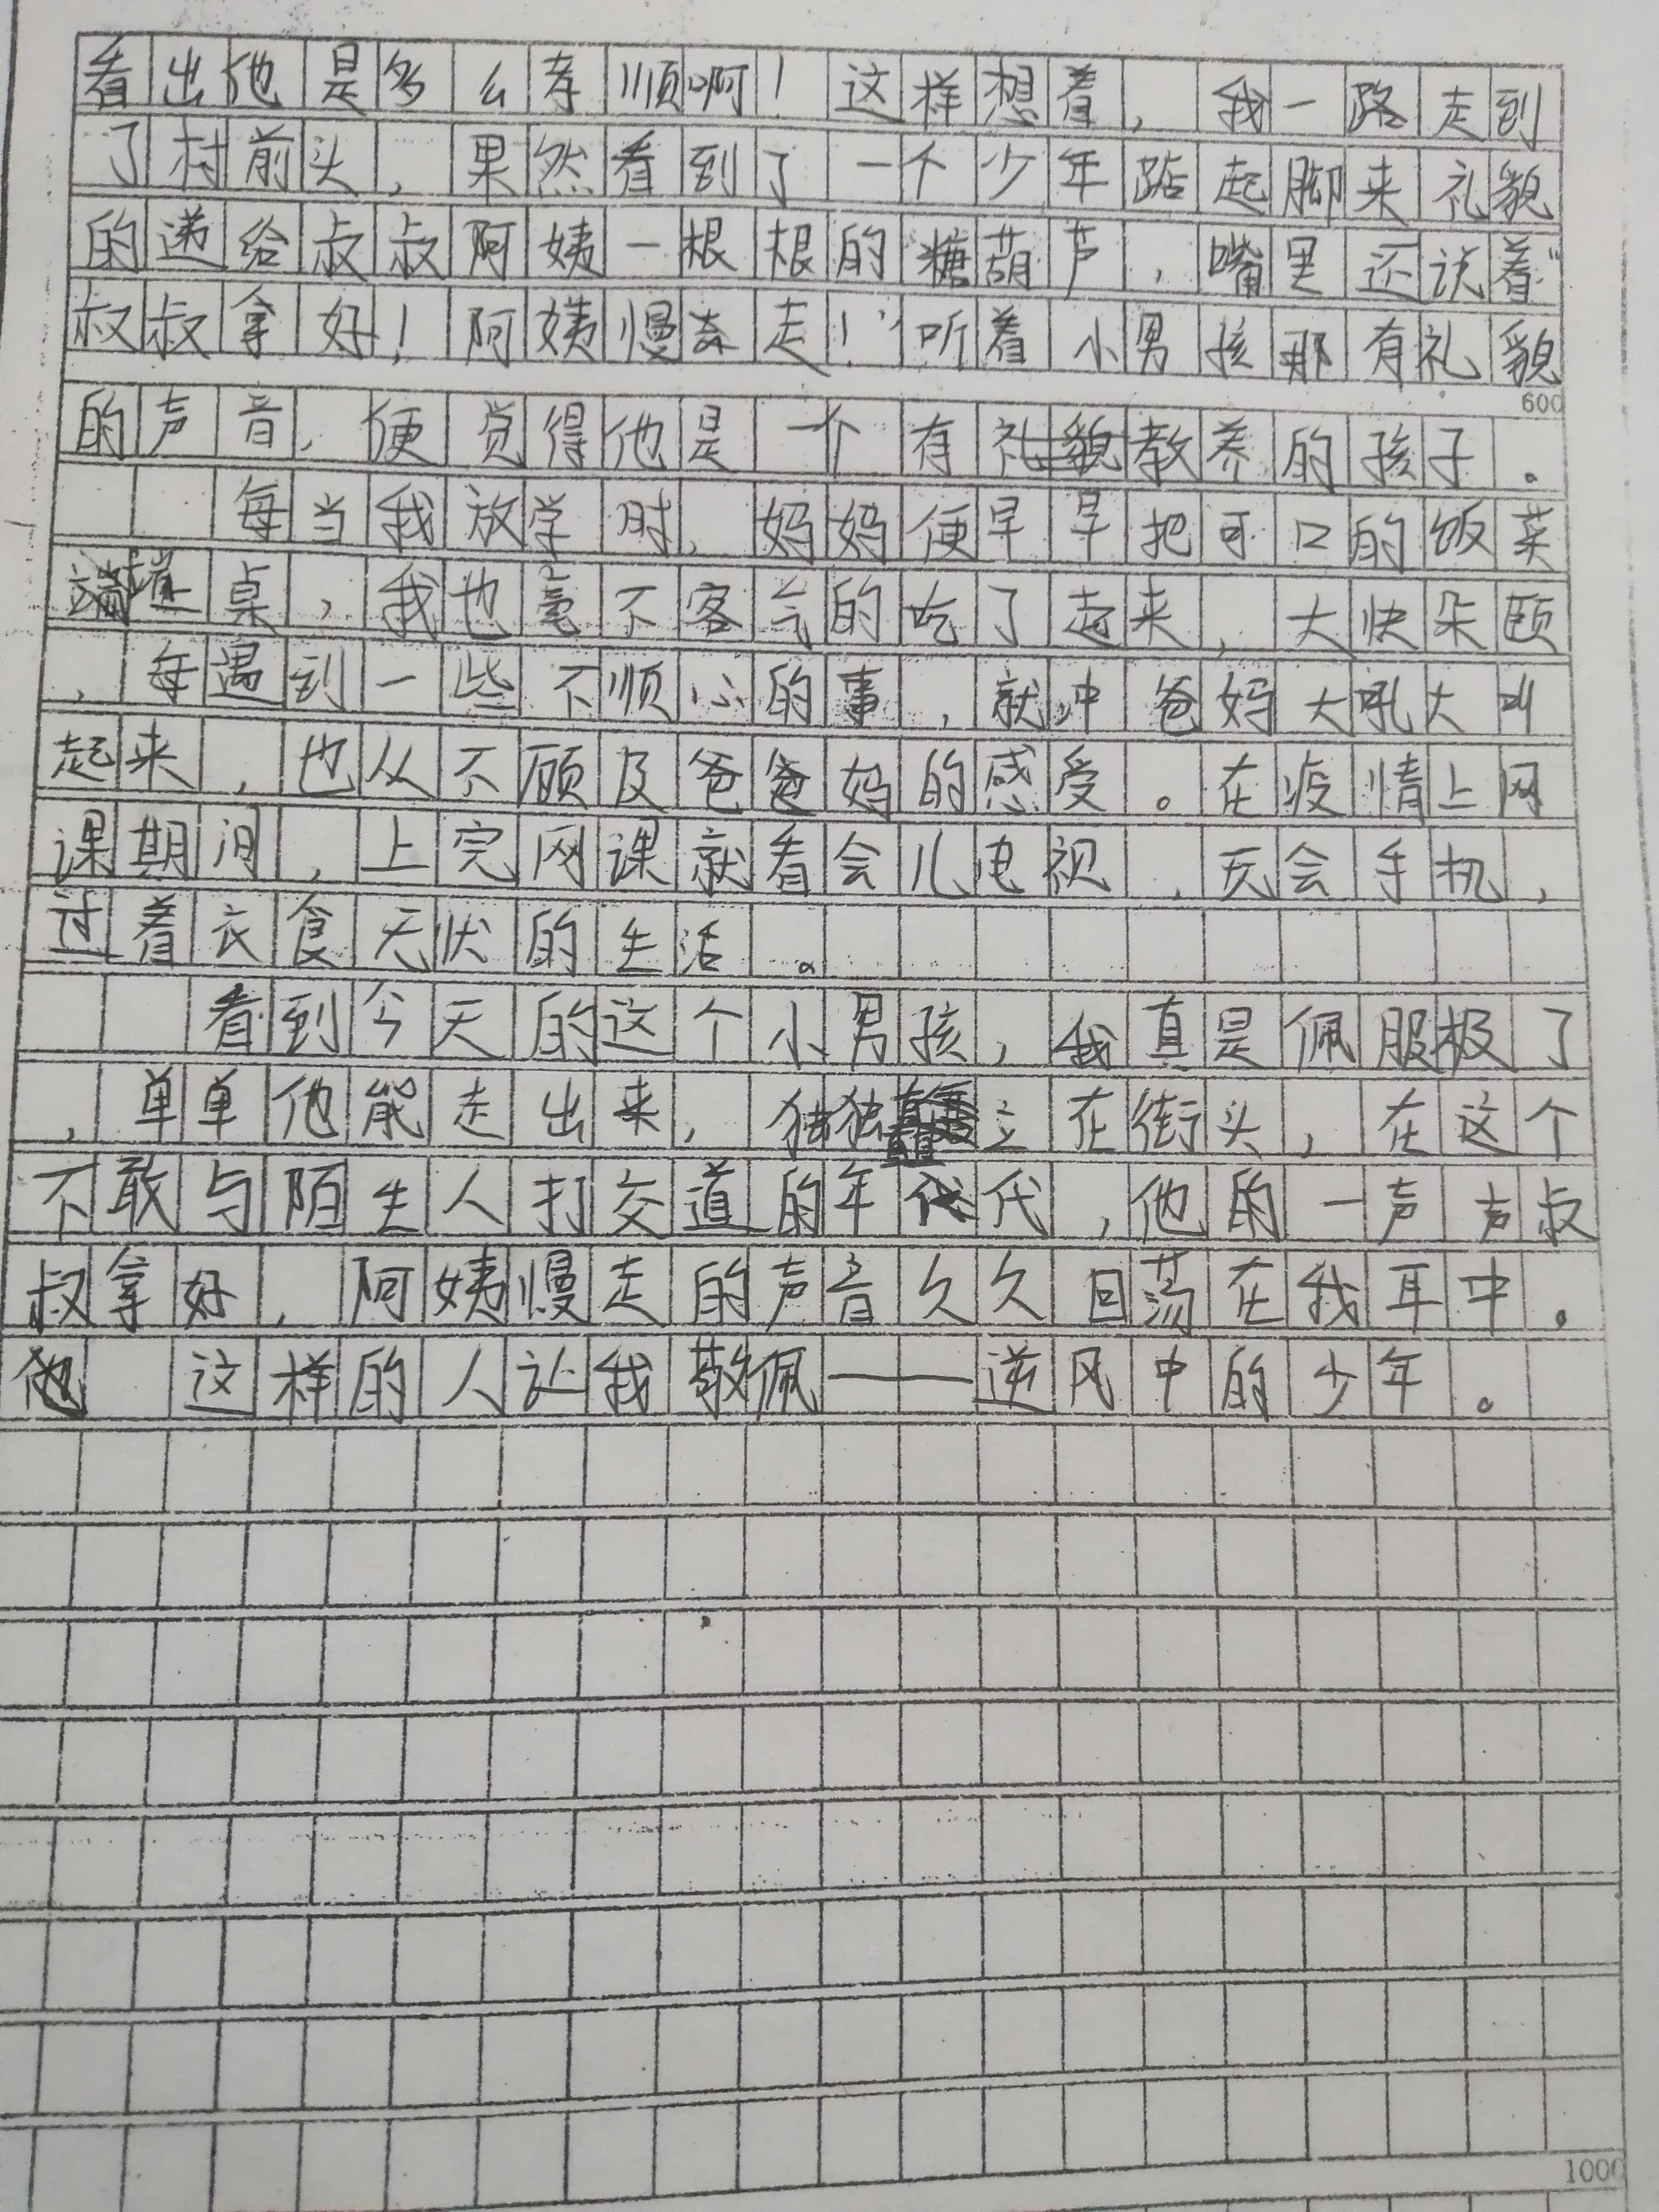 看出他是多么孝顺啊！这样想着，我一路走到
了村前头，果然看到了一个少年踮起脚来礼貌
的递给叔叔阿姨一根根的糖葫芦，嘴里还说着“
叔叔拿好！阿姨慢走！”听着小男孩那有礼貌
600
的声音，便觉得他是一个有礼貌教养的孩子。
每当我放学时，妈妈便早早把可口的饭菜
端上桌，我也毫不客气的吃了起来，大快朵颐
，每遇到一些不顺心的事，就冲爸妈大吼大叫
起来，也从不顾及爸爸妈的感受。在疫情上网
课期间，上完网课就看会儿电视，玩会手机，
过着衣食无忧的生活。
看到今天的这个小男孩，我真是佩服极了
，单单他能走出来，独独立在街头，在这个
不敢与陌生人打交道的年代，他的一声声叔
叔拿好，阿姨慢走的声音久久回荡在我耳中。
他 这样的人让我敬佩——逆风中的少年。
1000